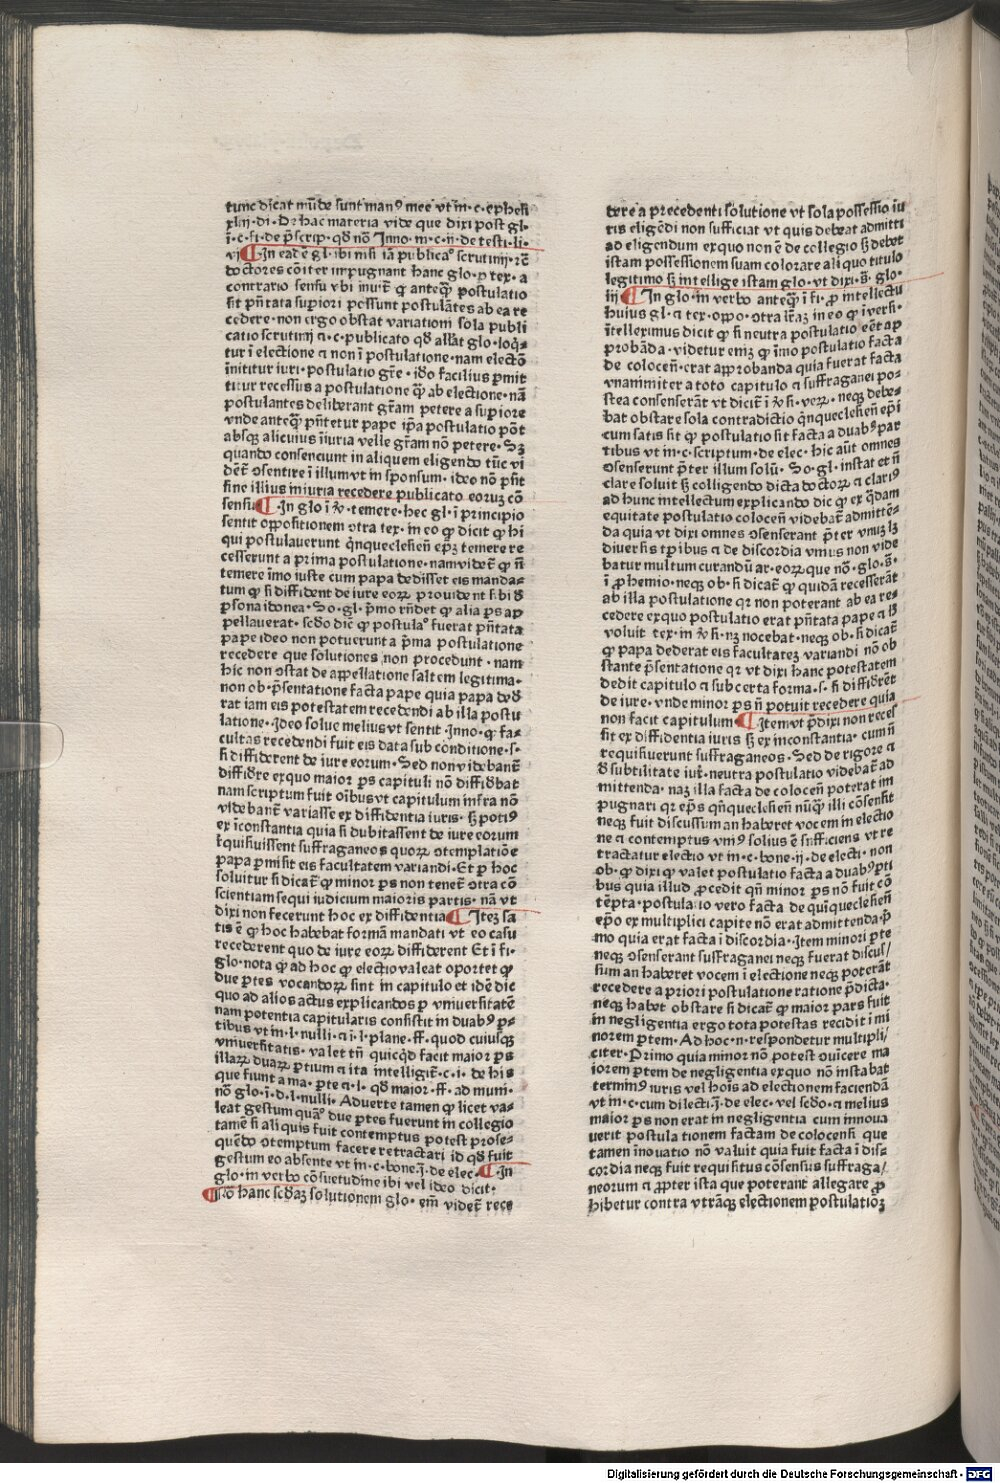 tunc dicat mūde sunt manꝰ mee vt in·c·ephesi
xliij·di·De hac materia vide que dixi post gl·
ī·c·fi·de p̄scrip·qd̄ nō Inno·in·c·ij·de testi·li·
vj ¶In eadē gl·ibi nisi iā publicaº scrutinij·rn̄
doctores cōiter impugnant hanc glo·ꝑ tex·a
contrario sensu vbi inuit̄ ꝙ anteqͣ postulatio
sit pn̄tata supiori possunt postulātes ab ea re
cedere·non ergo obstat variationi sola publi
catio scrutinij ⁊·c·publicato qd̄ allāt glo·loqͥ
tur ī electione ⁊ non ī postulatione·nam electō
īnititur iuri·postulatio gr̄e·ido facilius ꝑmit
titur recessus a postulatione qͣ ab electione·nā
postulantes deliberant gr̄am petere a supiore
vnde anteqͣ pn̄tetur pape ip̄a postulatio pōt
absqꝫ alicuius īiuria velle gr̄am nō petere·Sꝫ
quando consenciunt in aliquem eligendo tūc vi
dēt̄ ↄsentire ī illum vt in sponsum·ideo nō pn̄t
sine illius iniuria recedere publicato eorum cō
sensu ¶In glo ī ꝟ·temere·hec gl·ī principio
sentit oppositionem ↄtra tex·in eo ꝙ dicit ꝙ hi
qui postulauerunt qͥnquecleſien̄ ep̄ꝫ temere re
cesserunt a prima postulatione·nam videt̄ ꝙ n̄
temere īmo iuste cum papa dedisset eis manda-
tum ꝙ si diffident de iure eorꝝ prouident sibi ꝺ
ꝑsona idonea·So·gl·pͥmo rn̄det ꝙ alia ꝑs ap
pellauerat·scd̄o dic̄ ꝙ postulaº fuerat pn̄tata
pape ideo non potuerunt a pͥma postulatione
recedere que solutiones non procedunt·nam
hic non ↄstat de appellatione saltem legitima·
non ob·pͥsentatione facta pape quia papa dede
rat iam eis potestatem recedendi ab illa postu
latione·Ideo solue melius vt sentit·Inno·ꝙ fa-
cultas recedendi fuit eis data sub conditione·s·
si diffiderent de iure eorum·Sed non videbant̄
diffidere exquo maior ꝑs capituli nō diffidebat
nam scriptum fuit oībus vt capitulum infra nō
videbant̄ variasse ex diffidentia iuris·sꝫ potiꝰ
ex īconstantia quia si dubitassent de iure eorum
req̄siuissent suffraganeos quorꝝ ↄtemplatiōe
papa ꝑmisit eis facultatem variandi·Et ꝑ hoc
soluitur si dicat̄ ꝙ minor ꝑs non tenet̄ ↄtra cō
scientiam sequi iudicium maioris partis·nā vt
dixi non fecerunt hoc ex diffidentia ¶Itē sa
tis ē ꝙ hoc habebat formā mandati vt eo casu
recederent quo de iure eorꝝ diffiderent Et ī fi·
glo·nota ꝙ ad hoc ꝙ electio valeat oportet ꝙ
due ꝑtes vocandorꝝ sint in capitulo et idē dic
quo ad alios actus explicandos ꝑ vniuersitatē
nam potentia capitularis consistit in duabꝰ ꝑ-
tibus vt in·l·nulli·⁊ ī·l·plane·ff·quod cuiusqꝫ
vniuersitatis·valet tn̄ quicqͥd facit maior ꝑs
illarꝝ duarꝝ ꝑtium ⁊ ita intelligit̄·c·i·de his
que fiunt a ma·ꝑte ⁊·l·qd̄ maior·ff·ad muni·
nō glo·ī·d·l·nulli·Aduerte tamen ꝙ licet va-
leat gestum quāº due ꝑtes fuerunt in collegio
tamē si aliquis fuit contemptus potest prose-
quēdo ↄtemptum facere retractari id qd̄ fuit
gestum eo absente vt in·c·bone·j·de elec· ¶In
glo·in verbo cōsuetudine ibi vel ideo dicit·
¶Nō hanc scd̄aꝫ solutionem glo·em̄ videt̄ rece
dere a precedenti solutione vt sola possessio iu
ris eligēdi non sufficiat vt quis debeat admitti
ad eligendum exquo non ē de collegio sꝫ debet
istam possessionem suam colorare aliquo titulo
legitimo sꝫ intellige istam glo·vt dixi·s̄·glo·
iij ¶In glo·in verbo anteqͣ ī fi·ꝓ intellectu
huius gl·⁊ tex·oppo·ↄtra lr̄am in eo ꝙ ī versi·
ītelleximus dicit ꝙ si neutra postulatio eēt ap
probāda·videtur enim ꝙ īmo postulatio facta
de colocen̄·erat approbanda quia fuerat facta
vnanimiter a toto capitulo ⁊ suffraganei pos-
stea consenserāt vt dicit̄ ī ꝟ·si·veꝝ·neqꝫ debe-
bat obstare sola contradictio qͥnquecleſien̄ ep̄i
cum satis sit ꝙ postulatio sit facta a duabꝰ par
tibus vt in·c·scriptum·de elec·hic aūt omnes
ↄsenserunt pͥter illum solū·So·gl·instat et n̄
clare soluit sꝫ colligendo dicta doctorꝝ ⁊ clariꝰ
ad hunc intellectum explicando dic ꝙ ex qͣdam
equitate postulatio colocen̄ videbat̄ admittē-
da quia vt dixi omnes ↄsenserant pͥter vnum lꝫ
diuersis tꝑibus ⁊ de discordia vnius non vide
batur multum curandū ar·eorꝝ que nō·glo·s̄·
ī ꝓhemio·neqꝫ ob·si dicat̄ ꝙ quidā recesserāt
ab illa postulatione qr non poterant ab ea re-
cedere exquo postulatio erat pn̄tata pape ⁊ ꝺ
voluit tex·in ꝟ si·nꝫ nocebat·neqꝫ ob·si dicat̄
ꝙ papa dederat eis facultatē variandi nō ob
stante pͥsentatione qr vt dixi hanc potestatem
dedit capitulo ⁊ sub certa forma·s·si diffiderēt
de iure·vnde minor ꝑs n̄ potuit recedere quia
non facit capitulum ¶Item vt pͥdixi non reces
sit ex diffidentia iuris sꝫ ex inconstantia·cum n̄
requisiuerunt suffraganeos·Sed de rigore ⁊
ꝺ subtilitate iur̄·neutra postulatio videbat̄ ad
mittenda·naꝫ illa facta de colocen̄ poterat im
pugnari qr ep̄s qͥnquecleſien̄ nūqͣ illi cōsensit
neqꝫ fuit discussum an haberet vocem in electio
ne ⁊ contemptus vniꝰ solius ē sufficiens vt re
tractatur electio vt in·c·bone·ij·de electi·non
ob·ꝙ dixi ꝙ valet postulatio facta a duabꝰ ꝑti
bus quia illud ꝓcedit qn̄ minor ꝑs nō fuit cō
tēpta·postulatio vero facta de quīquecleſien̄
ep̄o ex multiplici capite nō erat admittenda·pͥ
mo quia erat facta ī discordia·Item minori ꝑte
neqꝫ ↄsenserant suffraganei neqꝫ fuerat discus/
sum an haberet vocem ī electione neqꝫ poterāt
recedere a priori postulatione ratione pͥdicta·
neqꝫ habet obstare si dicat̄ ꝙ maior pars fuit
in negligentia ergo tota potestas recidit ī mi
norem ꝑtem·Ad hoc·n·respondetur multipli/
citer·Primo quia minor nō potest ↄuīcere ma
iorem ꝑtem de negligentia exquo nō instabat
terminꝰ iuris vel hoīs ad electionem faciendā
vt in·c·cum dilecti·j·de elec·vel scd̄o·⁊ melius
maior ꝑs non erat in negligentia cum innoua
uerit postulationem factam de colocensi que
tamen īnouatio nō valuit quia fuit facta ī dis-
cordia neqꝫ fuit requisitus cōsensus suffraga/
neorum ⁊ ꝓpter ista que poterant allegare ꝓ
hibetur contra vtrāqꝫ electionem postulatioꝫ
Digitalisierung gefördert durch die Deutsche Forschungsgemeinschaft - DFG